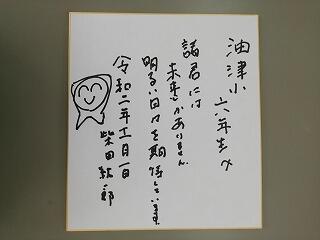 油津小
六年生へ
諸君には
未来しかありません。
明るい日々を期待しています。
令和二年十一月一日
柴田紘一郎